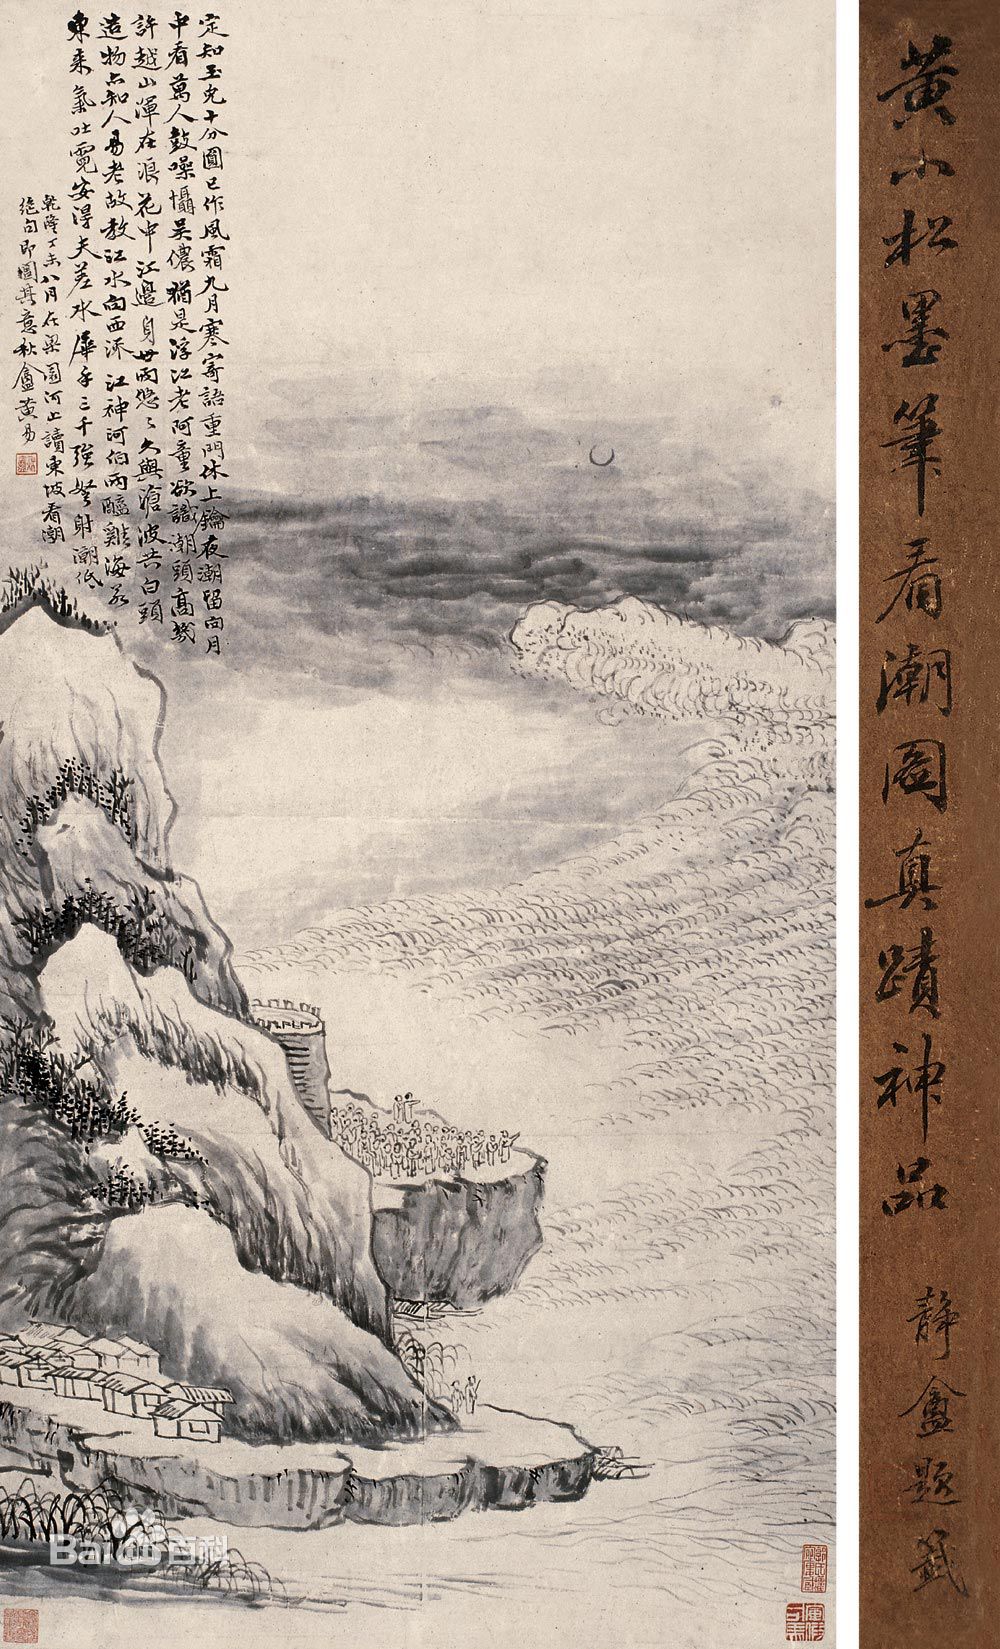 黃小松墨筆看潮圖真蹟神品
靜盦題籤
定知玉兔十分圓已作風霜九月寒寄語重門休上鑰夜潮留向月
中看萬人鼓噪懾吳儂猶是浮江老阿童欲識潮頭高幾
許越山渾在浪花中江邊身世兩悠〻久與滄波共白頭
造物亦知人易老故教江水向西流江神河伯兩醯雞海若
東来氣吐霓安得夫差水犀手三千強弩射潮低
乾隆丁未八月在梁園河上讀東坡看潮
絕句即圖其意秋盦黃易
Bai百科